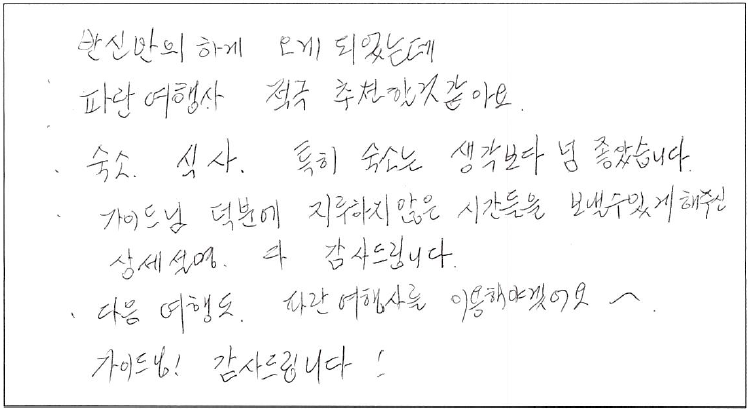 반신반의 하게 오게 되었는데
파란 여행사 적극 추천할것같아요.
숙소. 식사. 특히 숙소는 생각보다 넘 좋았습니다.
가이드님 덕분에 지루하지 않은 시간들을 보낼수있게 해주신
상세설명. 다 감사드립니다.
다음 여행도. 파란여행사를 이용해야겠어요 ^.
가이드님! 감사드립니다!